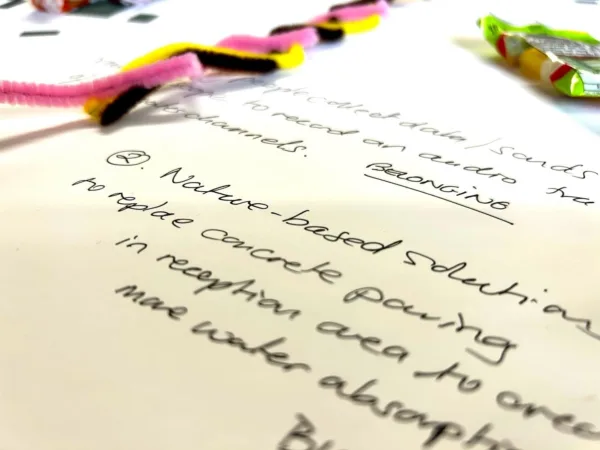 collect data / sounds
to record an audio
channels.
BELONGING
②. Nature-based solutions
to replace concrete paving
in reception area to crea
more water absorpti